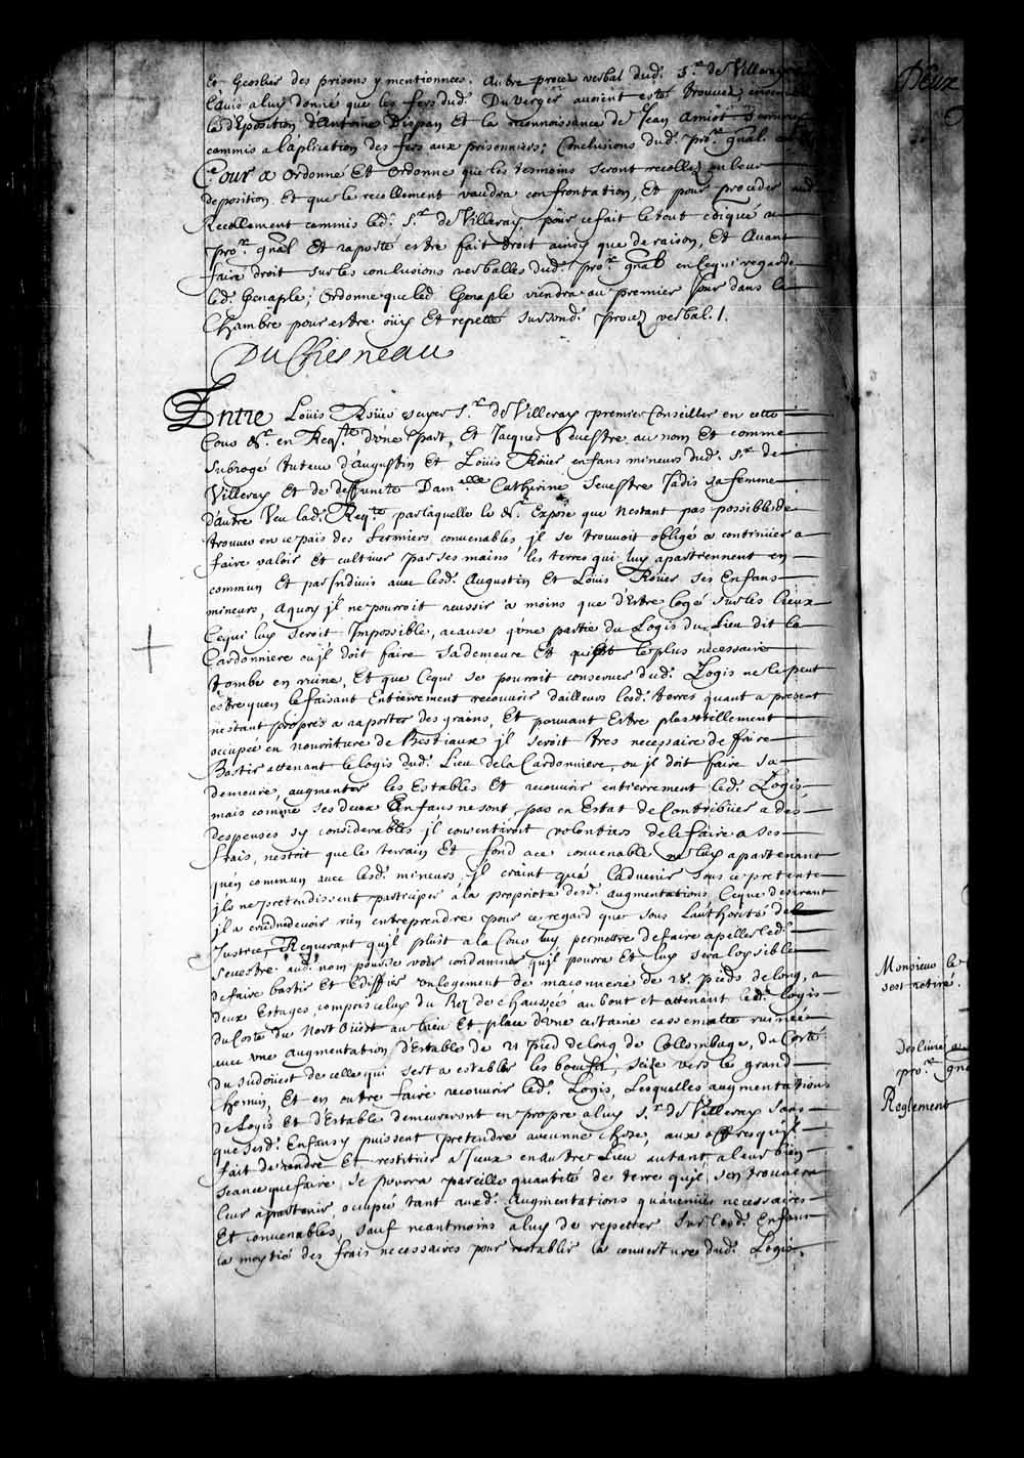 et Geoslier des prisons y mentionnees. Autre procez verbal dud. Sr. de Villeray
l'avis a luy donné que les fers dud. Du Verger avoient esté trouvez
la deposition d'Antoine Dispan Et la reconnoissance de Jean Amiot Serrurier
commis a l'aplication des fers aux prisonniers; Conclusions dud. pror. gnal.
Cour a ordonné Et ordonne que les tesmoins seront recollez en leur
deposition Et que le recollement vaudra confrontation, Et pour proceder aud.
Recollement commis led. Sr. de Villeray, pour ce fait le tout
pror. gnal Et raporté estre fait droit ainsy que de raison, Et Avant
faire droit sur les conclusions verballes dud. pror. gnal en ce qui regarde
led. Genaple; Ordonne que led. Genaple viendra au premier Jour dans la
Chambre pour estre oüy Et repetté sur sond. procez verbal. /.
DuChesneau
Entre Loüis Roüer escuyer Sr. de Villeray premier Conseiller en cette
Cour dr. en Reqte. d'une part, Et Jacques Seuestre au nom Et comme
subrogé tuteur d'Augustin Et Loüis Roüer enfans mineurs dud. Sr. de
Villeray Et de deffunte Damelle Catherine Seuestre Jadis sa femme
d'autre Veu lad. Reqte. par laquelle le dr. Expose que n'estant pas possible de
trouuer en ce païs des fermiers convenables jl se trouvoit obligé a continüer a
faire valoir Et cultiver par ses mains les terres qui luy apartiennent en
commun Et par Jndiuis avec lesd. Augustin Et Loüis Roüer ses Enfans
mineurs, a quoy jl ne pourroit reussir a moins que d'Estre logé sur les lieux
Ce qui luy seroit Jmpossible, a cause qu'une partie du Logis du Lieu dit la
Cardonniere ou jl doit faire sa demeure Et qui est le plus necessaire
tombe en ruine, Et que Ce qui se pourroit conserver dud. Logis ne le peut
estre qu'en le faisant Entierement recouvrir d'ailleurs lesd. terres quant a present
n'estant propres a raporter des grains, Et pouvant Estre plus utillement
occupée en nourriture de Bestiaux jl seroit tres necessaire de faire
Bastir attenant le logis dud. Lieu de la Cardonniere, ou jl doit faire sa
demeure, augmenter les Estables Et recouvrir entierement led. Logis,
mais comme ses deux Enfans ne sont pas en Estat de Contribüer a des
despenses sy considerables jl consentiroit volontiers de le faire a ses
frais, n'estoit que le terrain Et fond a ce convenable ne luy apartenant
qu'en commun avec lesd. mineurs, jl craint qu'a l'advenir sous ce pretexte
jls ne pretendissent participer a la proprieté desd. augmentations, Ce que desirant
jl a cru ne devoir rien entreprendre pour ce regard que sous l'authorité de la
Justice, Requerant qu'jl plust a la Cour luy permettre de faire apeller led.
Seuestre aud. nom pour se voir condamner qu'jl pourra Et luy sera loysible
de faire bastir Et Ediffier un logement de maçonnerie de 28. pieds de long, a
deux Estages, compris celuy du Rez de chaussée au bout et attenant led. Logis
du Costé du Nort Oüest au lieu Et place d'une certaine cassematte ruinée
avec une augmentation d'Estable de 21 pied de long de Collombage, du Costé
du sudoüest de celle qui sert a establer les boeufs, seize vers le grand
chemin, Et en outre faire recouvrir led. Logis, Lesquelles augmentations
de Logis et d'Estable demeureront en propre a luy Sr. de Villeray sans
que sesd. Enfans y puissent pretendre aucunne chose, aux offres qu'jl
fait de rendre Et restituer a Jceux en autre Lieu autant a leur bien
seance que faire se pourra pareille quantité de terre qu'jl s'en trouvera
leur apartenir, occupée tant auxd. Augmentations qu'avenües necessaires
Et convenables, sauf neantmoins a luy de repetter sur lesd. Enfans
la moytié des frais necessaires pour restablir la couverture dud. Logis,
Deux
Monsieur le
s'est retiré.
pror. gnal
Reglement